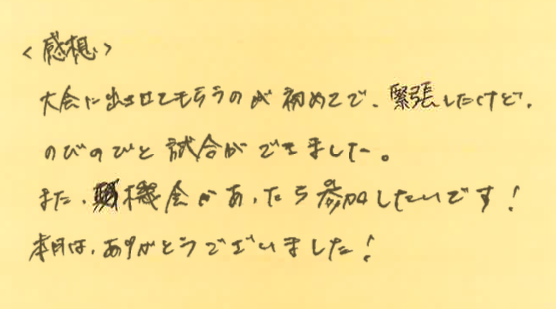 <感想>
大会に出させてもらうのが初めてで、緊張したけど、
のびのびと試合ができました。
また、機会があったら参加したいです!
本日は、ありがとうございました!